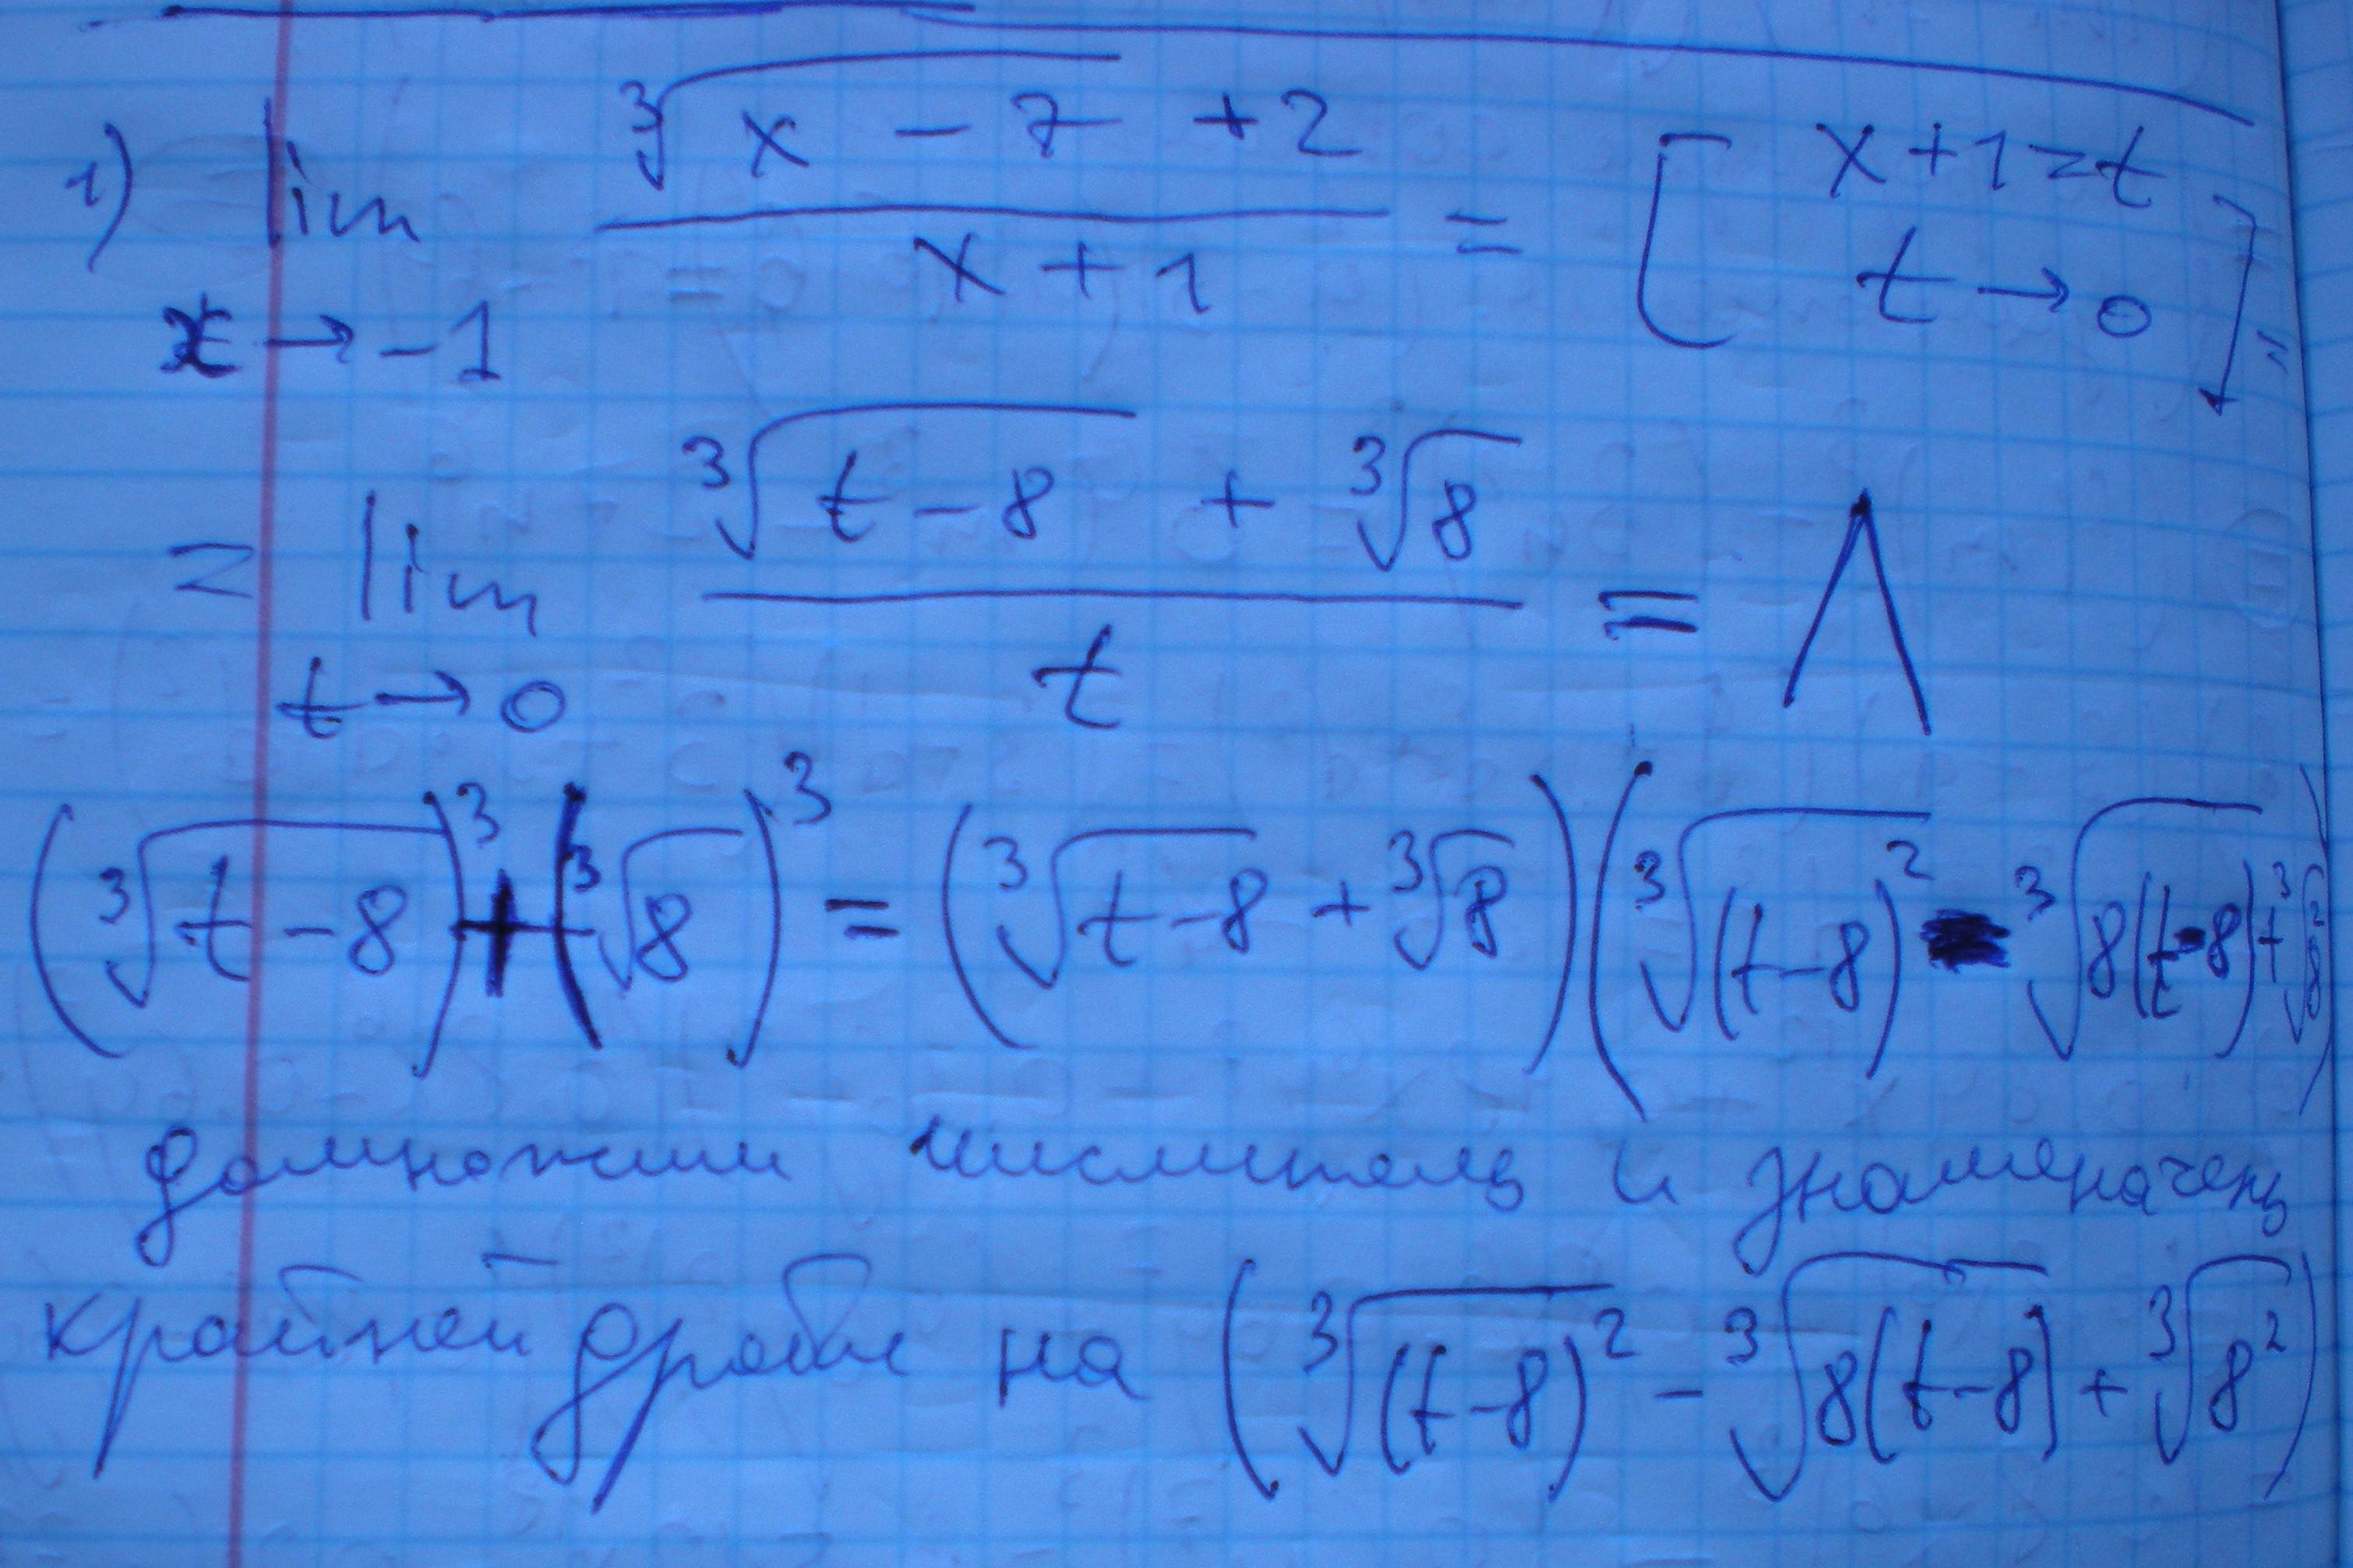 1) lim x→-1 (∛(x - 7) + 2)/(x + 1) = [x+1=t t→0] =
= lim t→0 (∛(t-8) + ∛8)/t = Λ
(∛(t-8))³ + (∛8)³ = (∛(t-8) + ∛8)(∛(t-8)² - ∛(8(t-8)) + ∛8²)
домножим числитель и знаменатель
крайней дроби на (∛(t-8)² - ∛(8(t-8)) + ∛8²)